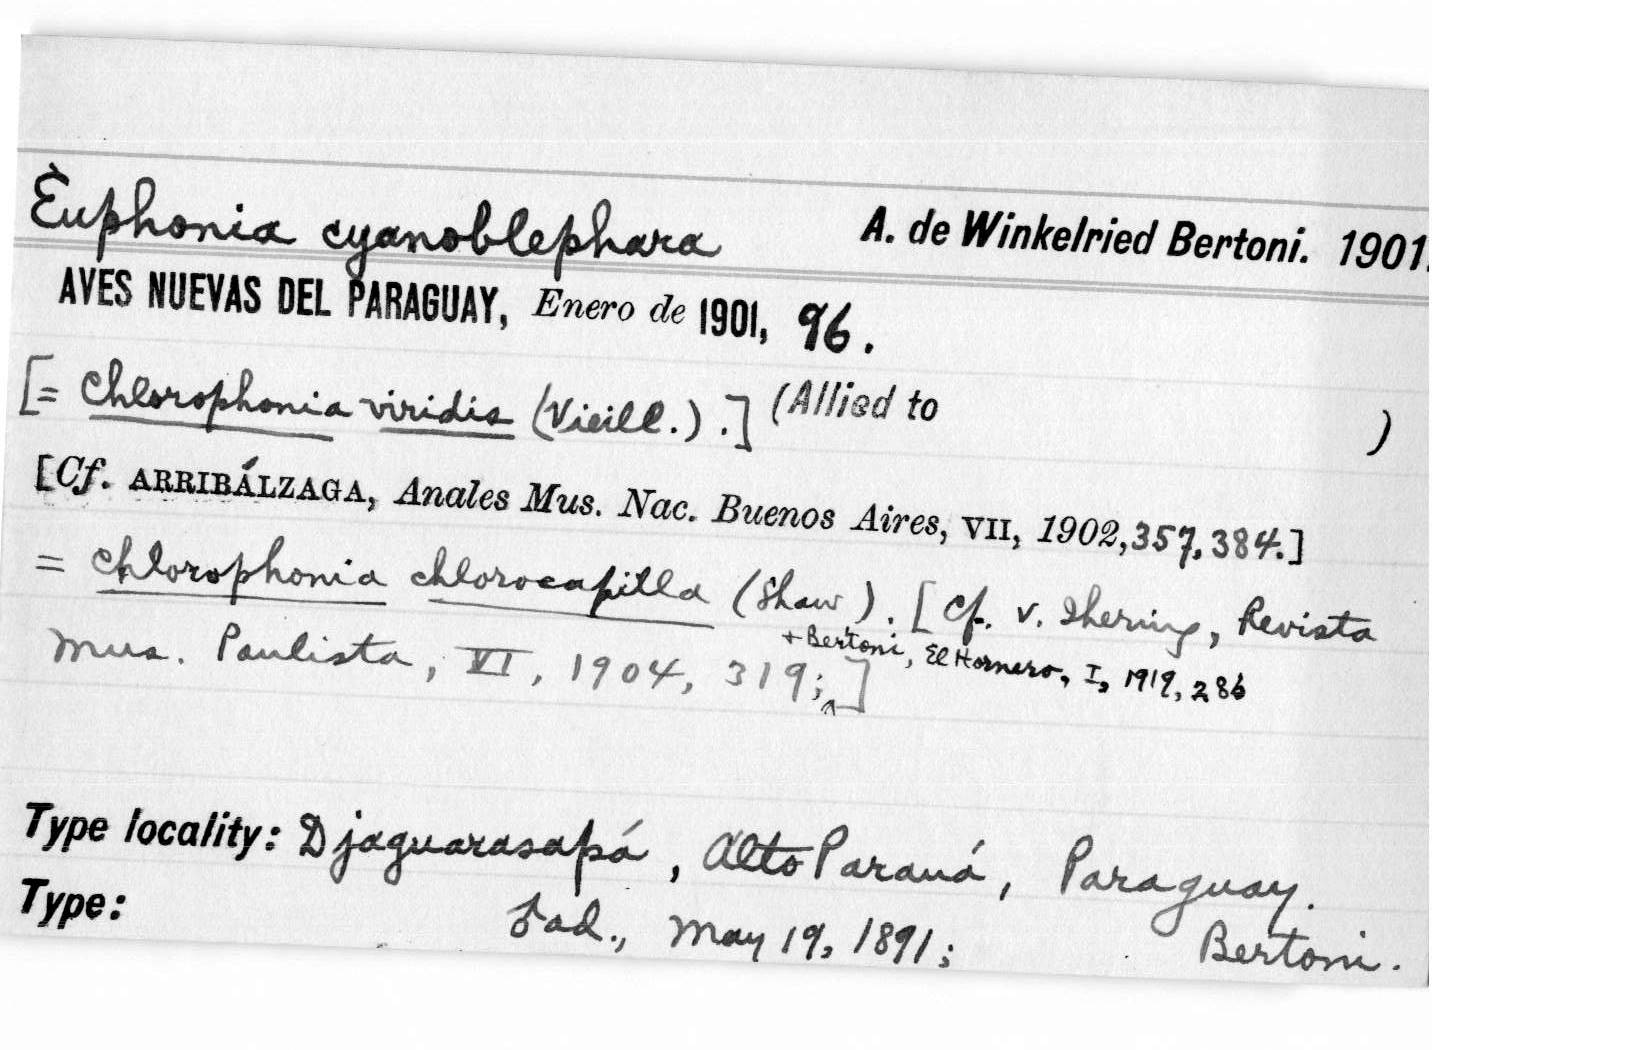 Euphonia cyanoblephara A. de Winkelried Bertoni. 1901.
AVES NUEVAS DEL PARAGUAY, Enero de 1901, 96.
[= Chlorophonia viridis (Vieill.).] (Allied to )
[Cf. ARRIBÁLZAGA, Anales Mus. Nac. Buenos Aires, VII, 1902, 357, 384.]
= Chlorophonia chlorocapilla (Shaw). [Cf. v. Ihering, Revista
+ Bertoni, El Hornero, I, 1919, 286
Mus. Paulista, VI, 1904, 319; ]
Type locality: Djaguarasapá, Alto Paraná, Paraguay.
Type: ♂ ad., May 19, 1891; Bertoni.